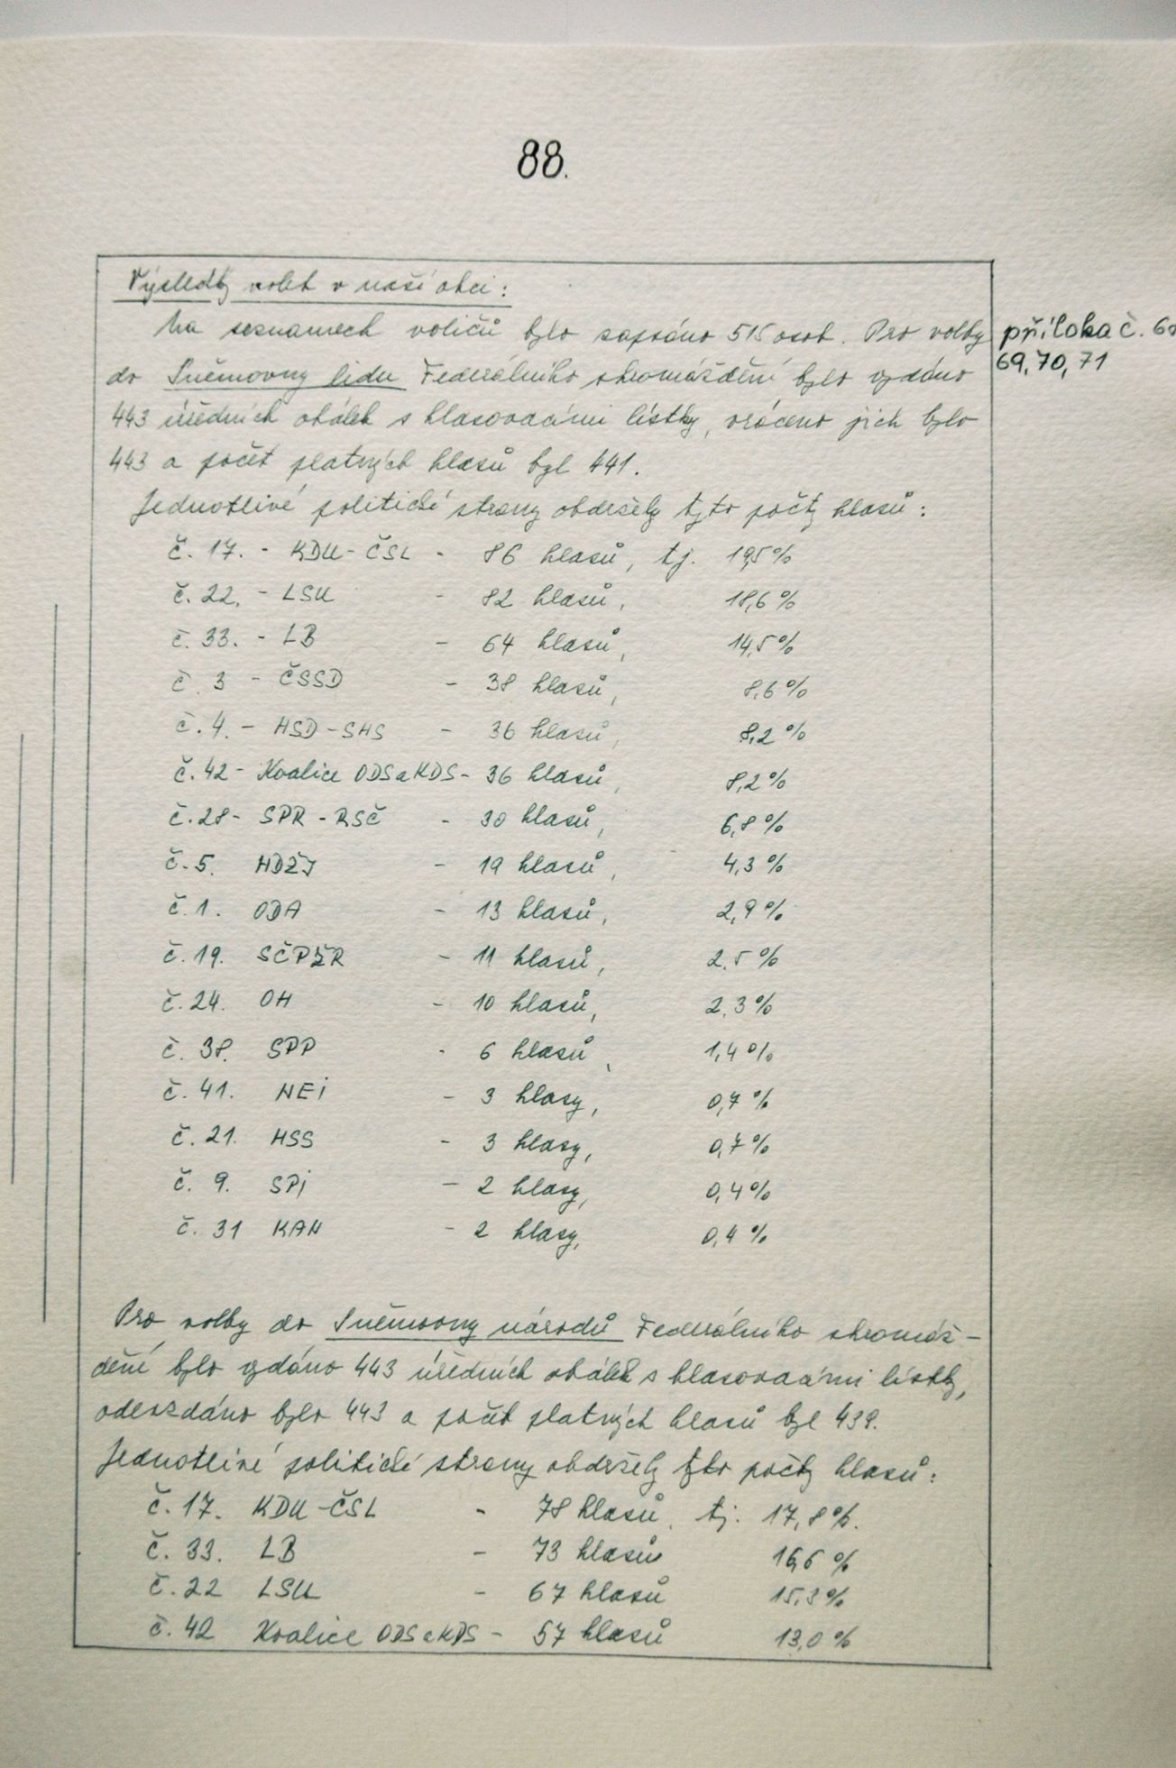 88.
Výsledky voleb v naší obci:
Na seznamech voličů bylo zapsáno 515 osob. Pro volby
příloha č. 68
69, 70, 71
do Sněmovny lidu Federálního shromáždění bylo vydáno
443 úředních obálek s hlasovacími lístky, vráceno jich bylo
443 a počet platných hlasů byl 441.
Jednotlivé politické strany obdržely tyto počty hlasů:
č. 17. - KDU-ČSL - 86 hlasů, tj. 19,5%
č. 22. - LSU - 82 hlasů, 18,6%
č. 33. - LB - 64 hlasů, 14,5%
č. 3 - ČSSD - 38 hlasů, 8,6%
č. 4. - HSD-SMS - 36 hlasů, 8,2%
č. 42 - Koalice ODS a KDS - 36 hlasů, 8,2%
č. 28 - SPR-RSČ - 30 hlasů, 6,8%
č. 5. HDŽJ - 19 hlasů, 4,3%
č. 1. ODA - 13 hlasů, 2,9%
č. 19. SČPŽR - 11 hlasů, 2,5%
č. 24. OH - 10 hlasů, 2,3%
č. 38. SPP - 6 hlasů, 1,4%
č. 41. NEI - 3 hlasy, 0,7%
č. 21. HSS - 3 hlasy, 0,7%
č. 9. SPI - 2 hlasy, 0,4%
č. 31 KAN - 2 hlasy, 0,4%
Pro volby do Sněmovny národů Federálního shromáž-
dění bylo vydáno 443 úředních obálek s hlasovacími lístky,
odevzdáno bylo 443 a počet platných hlasů byl 439.
Jednotlivé politické strany obdržely tyto počty hlasů:
č. 17. KDU-ČSL - 78 hlasů, tj. 17,8%.
č. 33. LB - 73 hlasů 16,6%
č. 22 LSU - 67 hlasů 15,3%
č. 42 Koalice ODS a KDS - 57 hlasů 13,0%